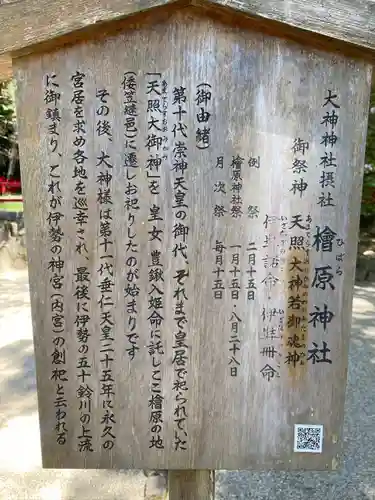 大神神社摂社 檜原神社
ひばら
御祭神 天照大神若御魂神
あまてらすおおかみのわかみたまのかみ
いざなぎのみこと いざなみのみこと
伊弉諾命・伊弉冊命
例祭 二月十五日
檜原神社祭 一月十五日・八月二十八日
月次祭 毎月十五日
(御由緒)
第十代崇神天皇の御代、それまで皇居で祀られていた
「天照大御神」を 皇女 豊鍬入姫命に託しここ檜原の地
(倭笠縫邑)に遷しお祀りしたのが始まりです
その後、大神様は第十一代垂仁天皇二十五年に永久の
宮居を求め各地を巡幸され 最後に伊勢の五十鈴川の上流
に御鎮まり、これが伊勢の神宮(内宮)の創祀と云われる